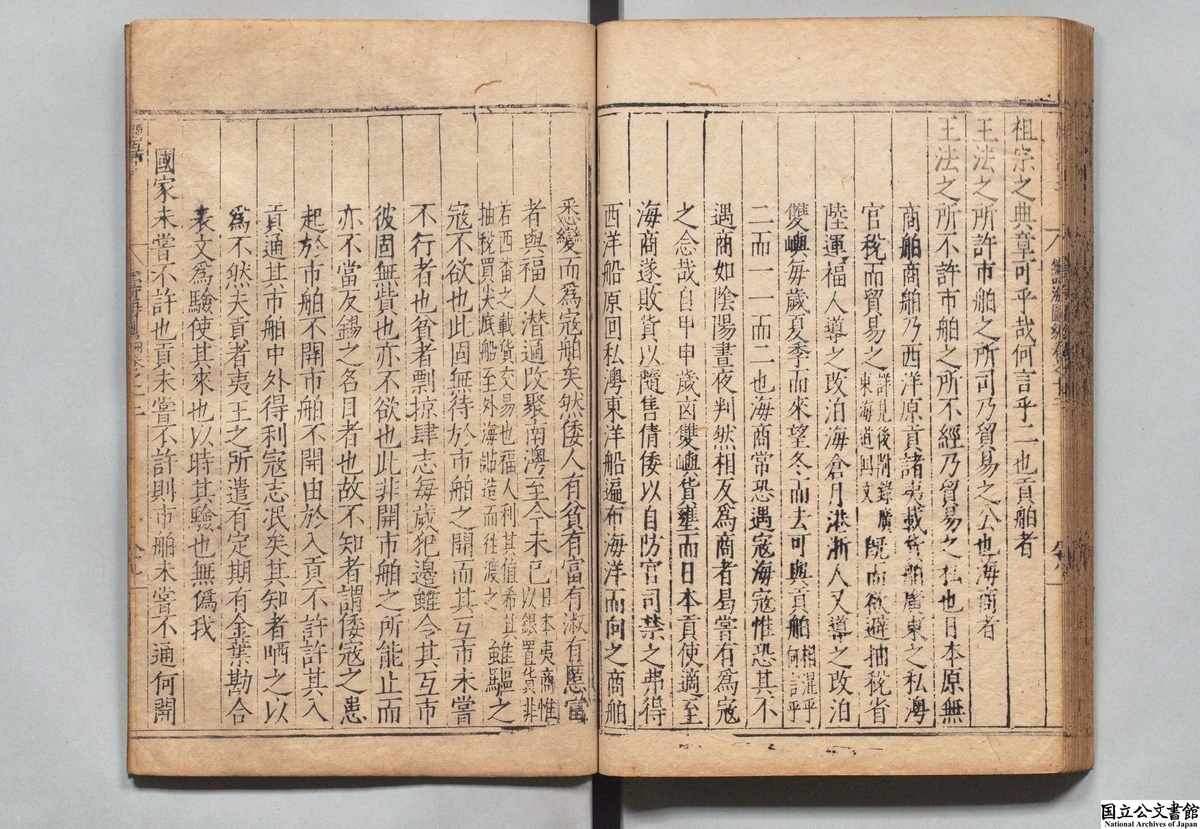 祖宗之典章可乎哉何言乎二也貢舶者
王法之所許市舶之所司乃貿易之公也海商者
王法之所不許市舶之所不經乃貿易之私也日本原無
商舶商舶乃西洋原貢諸夷載貨舶廣東之私澳
官稅而貿易之詳見後附錄廣東海道回文既而欲避抽稅省
陸運福人導之改泊海倉月港浙人又導之改泊
雙嶼每歲夏季而來望冬而去可與貢舶相混乎何訝乎
二而一一而二也海商常恐遇寇海寇惟恐其不
遇商如陰陽晝夜判然相反爲商者曷嘗有爲寇
之念哉自甲申歲凶雙嶼貨壅而日本貢使適至
海商遂敗貨以隨售倩倭以自防官司禁之弗得
西洋船原回私澳東洋船遍布海洋而向之商舶
悉變而爲寇舶矣然倭人有貧有富有淑有慝富
者與福人潛通改聚南灣至今未已日本夷商惟以銀置貨非
若西番之載貨交易也福人利其值希其
抽稅買尖底船至外海貼造而往渡之雖驅之
寇不欲也此固無待於市舶之開而其互市未嘗
不行者也貧者剽掠肆志每歲犯邊雖令其互市
彼固無貲也亦不欲也此非開市舶之所能止而
亦不當反錫之名目者也故不知者謂倭寇之患
起於市舶不開市舶不開由於入貢不許許其入
貢通其市舶中外得利寇志泯矣其知者哂之以
爲不然夫貢者夷王之所遣有定期有金葉勘合
表文爲驗使其來也以時其驗也無僞我
國家未嘗不許也貢未嘗不許則市舶未嘗不通何開
国立公文書館
National Archives of Japan